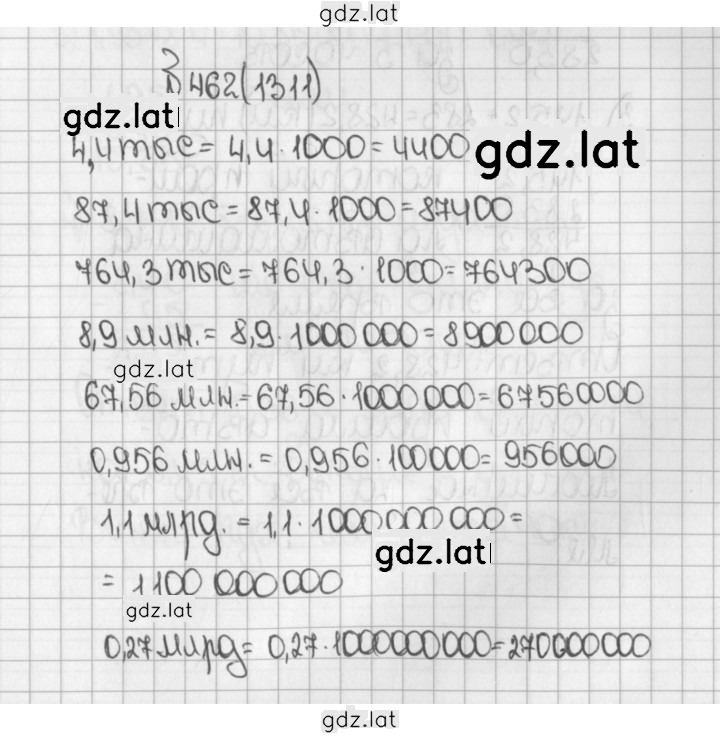 gdz.lat
462(1311)
gdz.lat
4,4 тыс = 4,4 · 1000 = 4400
gdz.lat
87,4 тыс = 87,4 · 1000 = 87400
764,3 тыс = 764,3 · 1000 = 764300
8,9 млн. = 8,9 · 1000 000 = 8900000
gdz.lat
67,56 млн. = 67,56 · 1000 000 = 67560000
0,956 млн. = 0,956 · 100000 = 956000
1,1 млрд. = 1,1 · 1000000 000 =
gdz.lat
= 1100 000 000
gdz.lat
0,27 млрд = 0,27 · 1000000000 = 270000000
gdz.lat